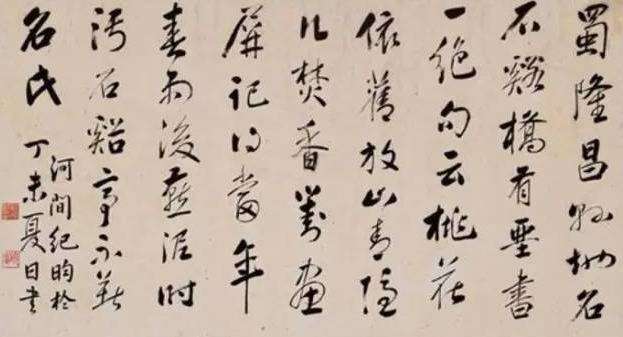 蜀隆昌縣地名
石谿橋有壁書
一絕句云桃花
依舊放山青隱
几焚香對畫
屏記得當年
春雨後燕泥時
污石谿亭不
名氏
河間紀昀於
丁未夏日書